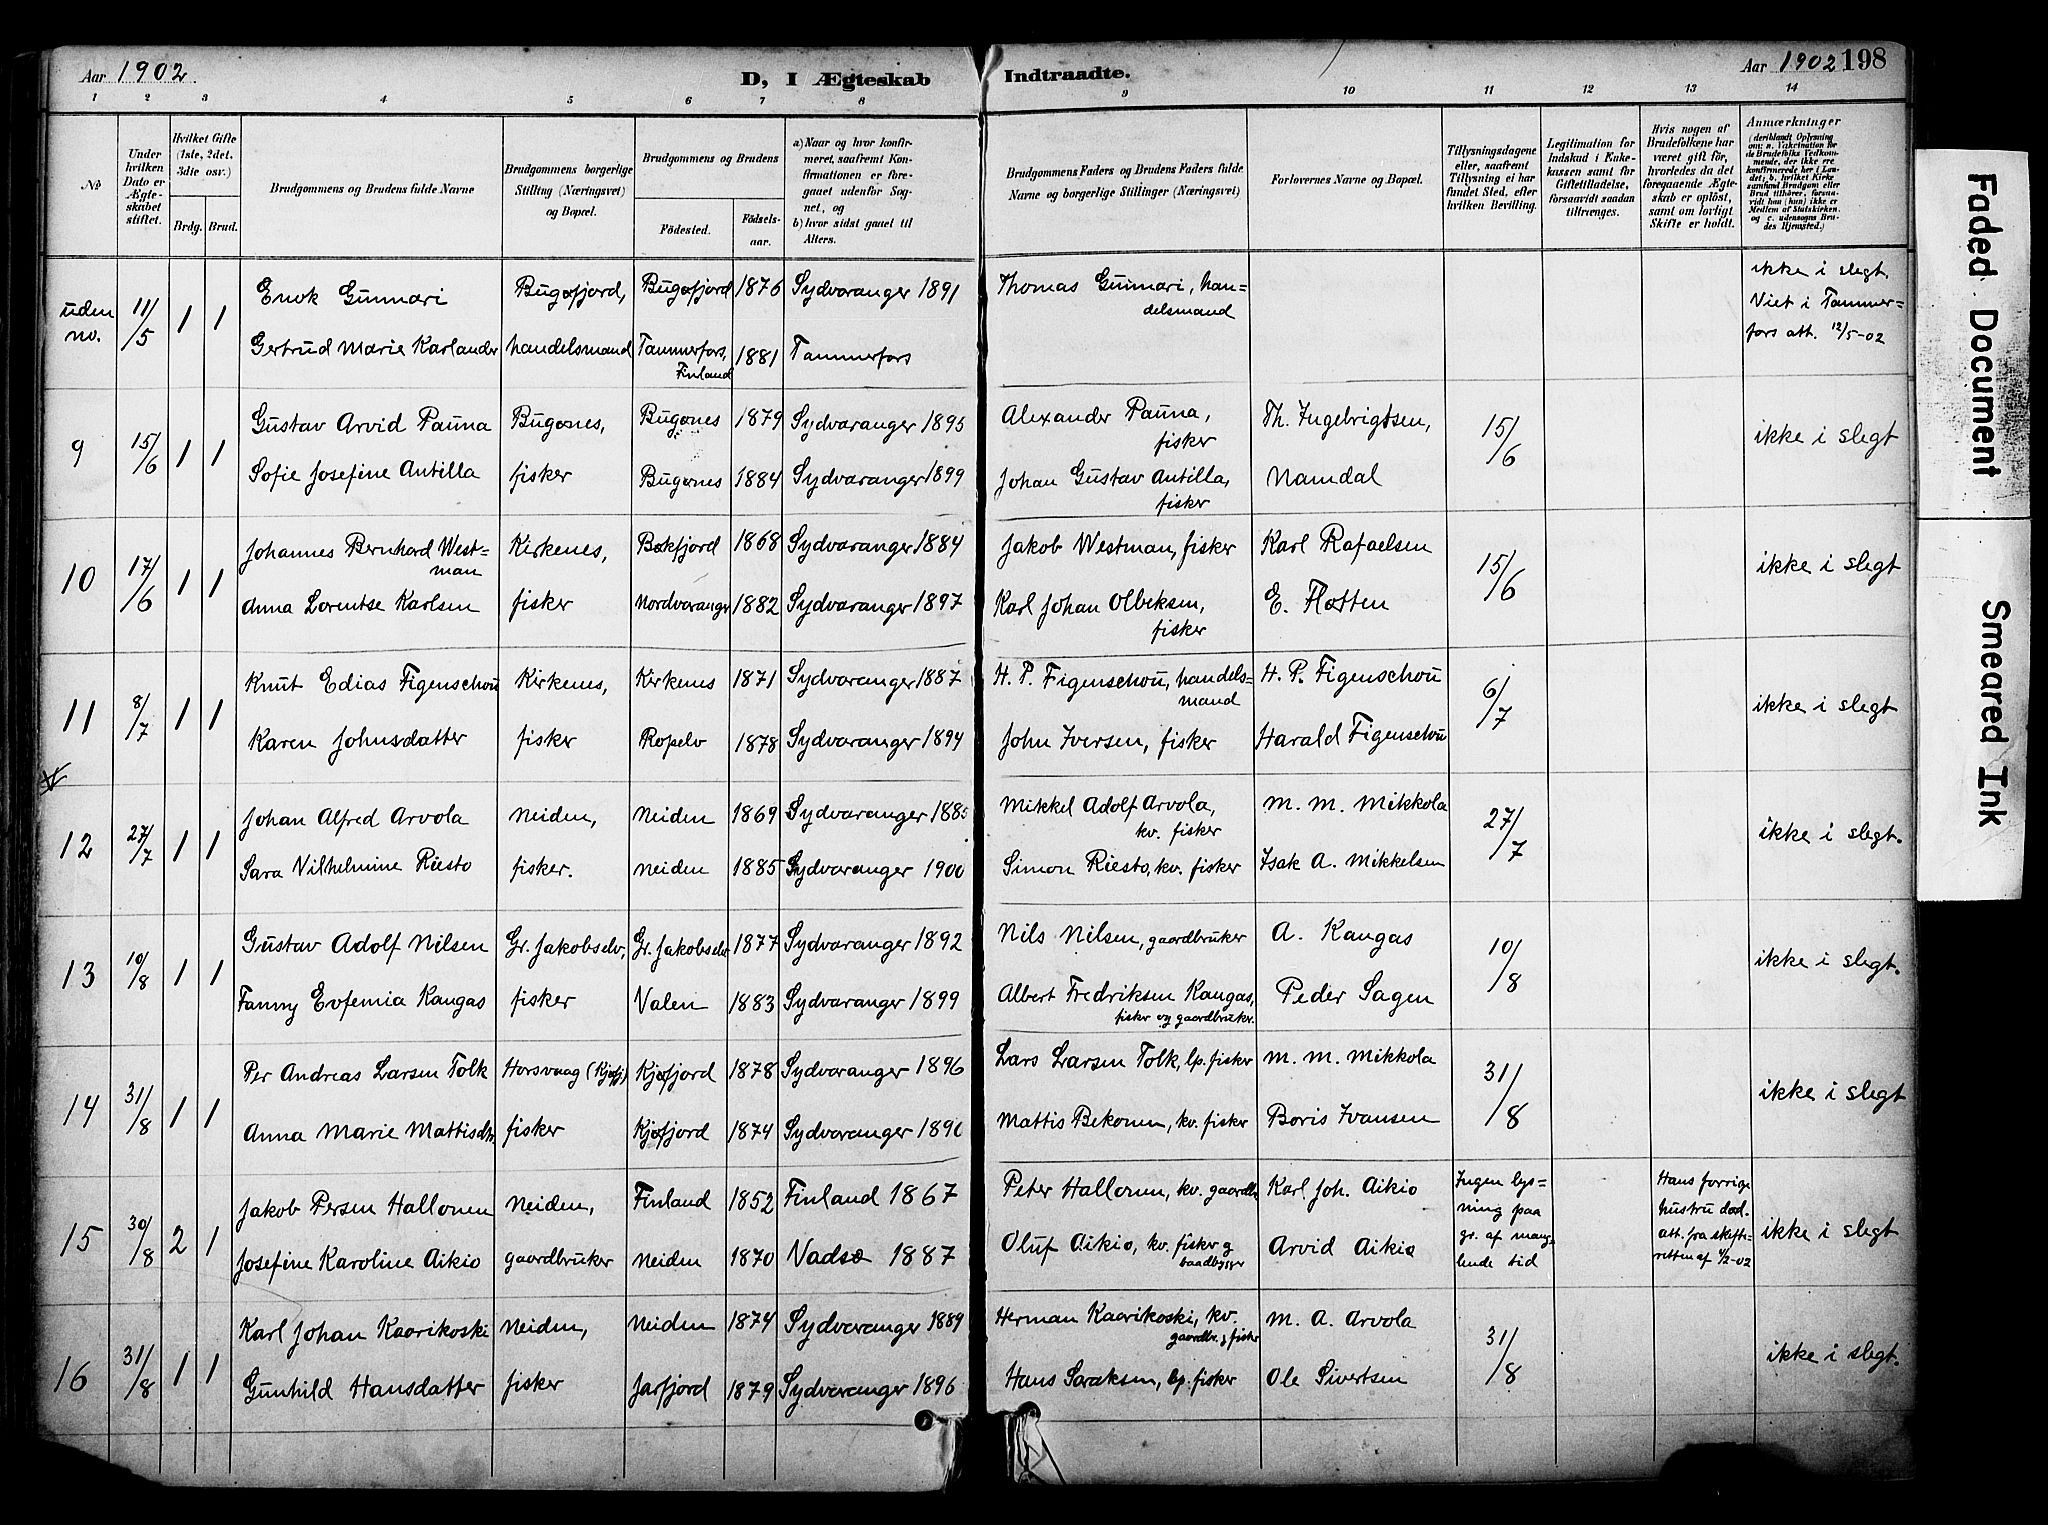 Aar 1902
D, I Ægteskab Indtraadte.
Aar 1902 198
1 2 3 4 5 6 7 8 9 10 11 12 13 14
No
Under hvilken Dato er Ægteskabet stiftet.
Hvilket Gifte (1ste, 2det, 3die osv.)
Brdg. Brud.
Brudgommens og Brudens fulde Navne
Brudgommens borgerlige Stilling (Næringsvei) og Bopæl.
Brudgommens og Brudens
Födested. Födselsaar.
a) Naar og hvor konfirmeret, saafremt Konfirmationen er foregaaet udenför Sognet, og
b) hvor sidst gaaet til Alters.
Brudgommens Faders og Brudens Faders fulde Navne og borgerlige Stillinger (Næringsvei)
Forlovernes Navne og Bopæl.
Tillysningsdagene eller, saafremt Tillysning ei har fundet Sted, efter hvilken Bevilling.
Legitimation for Indskud i Enkekassen samt for Giftetilladelse, forsaavidt saadan tiltrænges.
Hvis nogen af Brudefolkene har været gift för, hvorledes da det foregaaende Ægteskab er oplöst, samt om lovligt Skifte er holdt.
Anmærkninger
uden no. 11/5 1 1 Enok Gunnari Bugøfjord, Bugøfjord 1876 Sydvaranger 1891 Thomas Gunnari, handelsmand ikke i slegt. Viet i Tammerfors att. 12/5-02
Gertrud Marie Karlander handelsmand Tammerfors, Finland 1881 Tammerfors
9 15/6 1 1 Gustav Arvid Pauna Bugønes, Bugønes 1879 Sydvaranger 1895 Alexander Pauna, fisker Th. Ingebrigtsen, 15/6 ikke i slegt
Sofie Josefine Antilla fisker Bugønes 1884 Sydvaranger 1899 Johan Gustav Antilla, fisker Namdal
10 17/6 1 1 Johannes Bernhard Westman Kirkenes, Bøkfjord 1868 Sydvaranger 1884 Jakob Westman, fisker Karl Rafaelsen 15/6 ikke i slegt
Anna Lorentse Karlsen fisker Nordvaranger 1882 Sydvaranger 1897 Karl Johan Olbeksen, fisker E. Flotten
11 8/7 1 1 Knut Edias Figenschou Kirkenes, Kirkenes 1871 Sydvaranger 1887 H. P. Figenschou, handelsmand H. P. Figenschou 6/7 ikke i slegt
Karen Johnsdatter fisker Ropelv 1878 Sydvaranger 1894 John Iversen, fisker Harald Figenschou
12 27/7 1 1 Johan Alfred Arvola Neiden, Neiden 1869 Sydvaranger 1885 Mikkel Adolf Arvola, kv. fisker M. M. Mikkola 27/7 ikke i slegt.
Sara Vilhelmine Riesto fisker. Neiden 1885 Sydvaranger 1900 Simon Riesto, kv. fisker Isak A. Mikkelsen
13 10/8 1 1 Gustav Adolf Nilsen Gr. Jakobselv, Gr. Jakobselv 1877 Sydvaranger 1892 Nils Nilsen, gaardbruker A. Kangas 10/8 ikke i slegt.
Fanny Evfemia Kangas fisker Valen 1883 Sydvaranger 1899 Albert Fredriksen Kangas, fisker og gaardbruker. Peder Sagen
14 31/8 1 1 Per Andreas Larsen Tolk Horsvaag (Kjøfj) Kjøfjord 1878 Sydvaranger 1896 Lars Larsen Tolk, lp. fisker M. M. Mikkola 31/8 ikke i slegt
Anna Marie Mattisdtr. fisker Kjøfjord 1874 Sydvaranger 1890 Mattis Bekonen, kv. fisker Boris Ivansen
15 30/8 2 1 Jakob Persen Hallonen Neiden, Finland 1852 Finland 1867 Peter Hallonen, kv. gaardbr Karl Joh. Aikio Ingen lysning paa gr. af manglende tid Hans forrige hustru død. att. fra skifteretten af 4/2-02 ikke i slegt
Josefine Karoline Aikio gaardbruker Neiden 1870 Vadsø 1887 Oluf Aikio, kv. fisker og baadbygger Arvid Aikio
16 31/8 1 1 Karl Johan Kaarikoski Neiden, Neiden 1874 Sydvaranger 1889 Herman Kaarikoski, kv. gaardbr. & fisker M. A. Arvola 31/8 ikke i slegt.
Gunhild Hansdatter fisker Jarfjord 1879 Sydvaranger 1896 Hans Saraksen, lp. fisker Ole Sivertsen
Faded Document
Smeared Ink